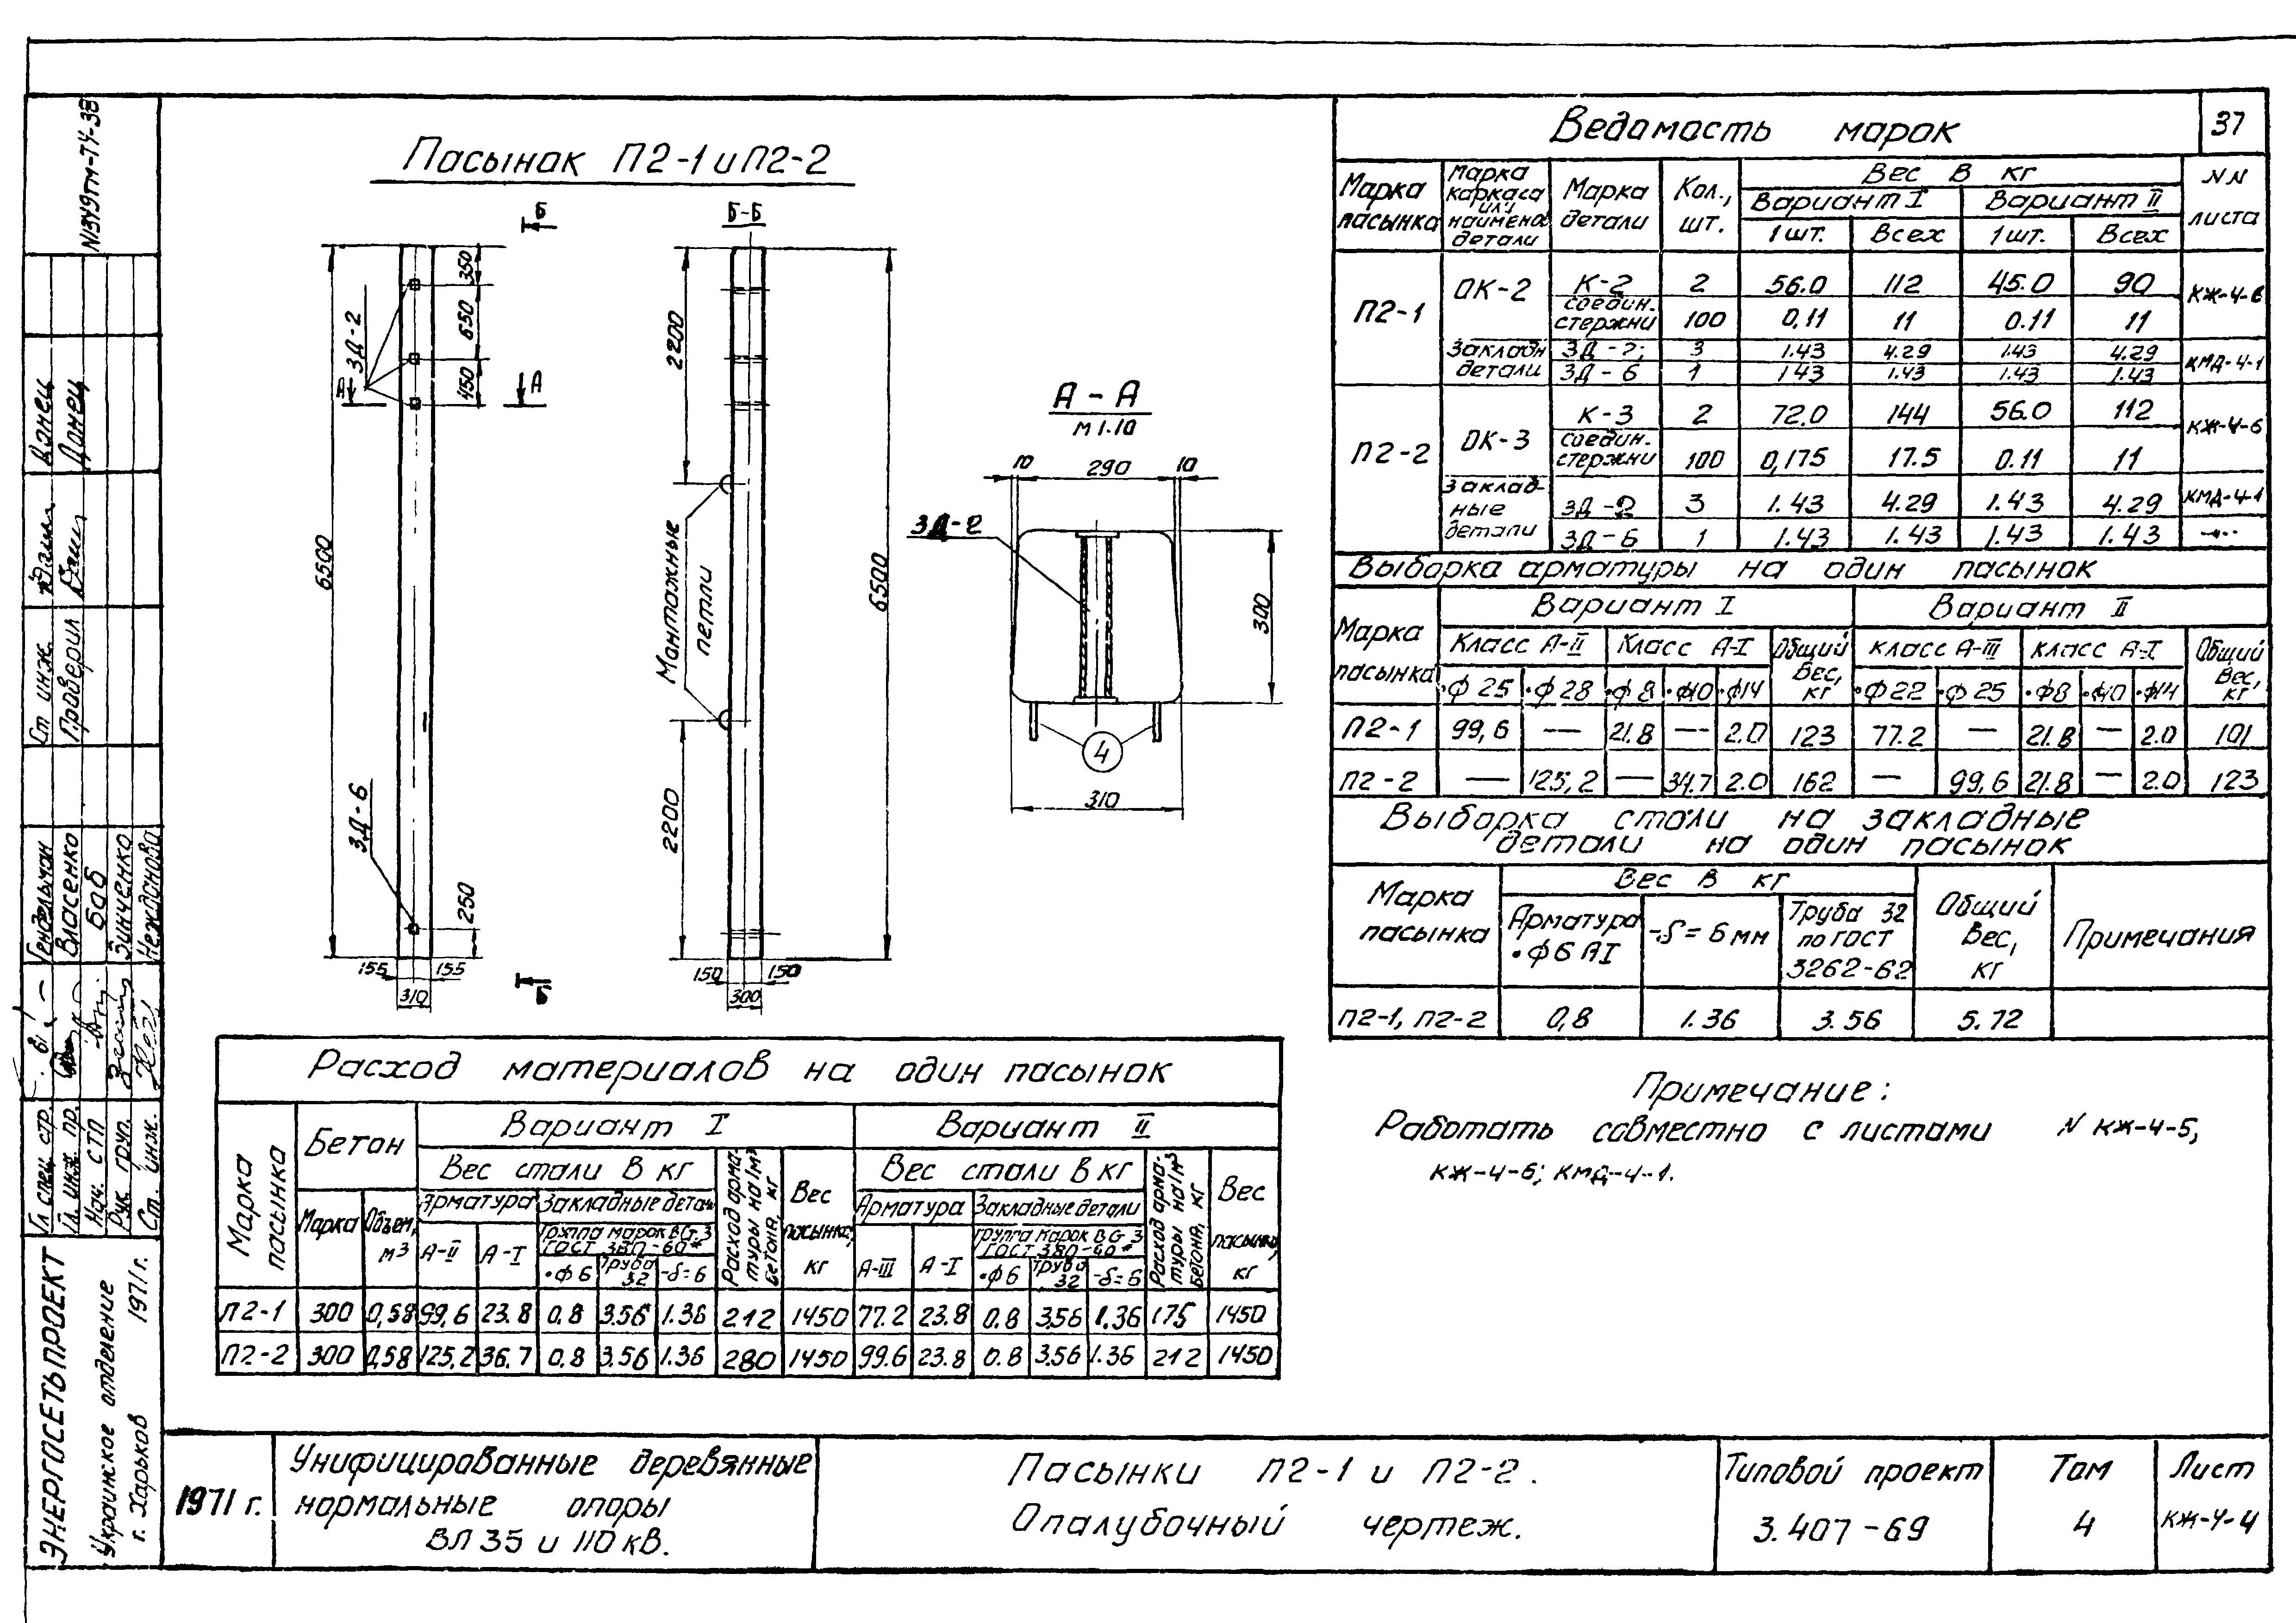 37
N1349тм-Т4-38
Пасынок П2-1 и П2-2
Б
Б-Б
350
650
450
ЗД-2
А
А
6500
ЗД-6
250
155
155
310
Б
2200
Монтажные
петли
2200
6500
150
150
300
А - А
М 1:10
10
290
10
ЗД-2
300
4
310
Ведомость марок
Марка пасынка
Марка каркаса или наименов. детали
Марка детали
Кол., шт.
Вес в кг
NN листа
Вариант I
Вариант II
1 шт.
Всех
1 шт.
Всех
П2-1
ОК-2
К-2 2 56.0 112 45.0 90
КЖ-4-6
соедин. стержни 100 0,11 11 0.11 11
Закладн. детали
ЗД-2; 3 1.43 4.29 1.43 4.29
КМД-4-1
ЗД-6 1 1.43 1.43 1.43 1.43
П2-2
ОК-3
К-3 2 72.0 144 56.0 112
КЖ-4-6
соедин. стержни 100 0,175 17.5 0.11 11
Заклад-
ные
детали
ЗД-2 3 1.43 4.29 1.43 4.29 КМД-4-1
ЗД-6 1 1.43 1.43 1.43 1.43 -"-
Выборка арматуры на один пасынок
Марка пасынка
Вариант I
Вариант II
Класс А-II
Класс А-I
Общий Вес, кг
класс А-III
класс А-I
Общий Вес, кг
•ф25 •ф28 •ф8 •ф10 •ф14 •ф22 •ф25 •ф8 •ф10 •ф14
П2-1 99,6 — 21.8 — 2.0 123 77.2 — 21.8 — 2.0 101
П2-2 — 125,2 — 34.7 2.0 162 — 99,6 21.8 — 2.0 123
Выборка стали на закладные
детали на один пасынок
Марка пасынка
Вес в кг
Общий Вес, кг
Примечания
Арматура •ф6 АI
-δ=6мм
Труба 32 по ГОСТ 3262-62
П2-1, П2-2 0,8 1.36 3.56 5.72
Примечание:
Работать совместно с листами N КЖ-4-5,
КЖ-4-6; КМД-4-1.
Расход материалов на один пасынок
Марка пасынка
Бетон
Вариант I
Вариант II
Вес стали в кг
Расход арма-
туры на 1м³
бетона, кг
Вес пасынка, кг
Вес стали в кг
Расход арма-
туры на 1м³
бетона, кг
Вес пасынка, кг
Марка
Объем, м³
Арматура
Закладные детали
Арматура
Закладные детали
Группа марок ВСт.3
ГОСТ 380-60*
Группа марок ВСт.3
ГОСТ 380-60*
А-II А-I •ф6 Труба 32 -δ=6 А-III А-I •ф6 Труба 32 -δ=6
П2-1 300 0,58 99,6 23.8 0,8 3.56 1.36 212 1450 77.2 23.8 0.8 3.56 1.36 175 1450
П2-2 300 0,58 125,2 36.7 0.8 3.56 1.36 280 1450 99.6 23.8 0.8 3.56 1.36 212 1450
Донец
Донец
Ст инж.
Проверил
Гендельман
Власенко
Баб
Зинченко
Нежданова
Гл. спец. стр.
Гл. инж. пр.
Нач. СТП
Рук. груп.
Ст. инж.
ЭНЕРГОСЕТЬПРОЕКТ
Украинское отделение
г. Харьков 1971 г.
1971 г.
Унифицированные деревянные
нормальные опоры
ВЛ 35 и 110 кВ.
Пасынки П2-1 и П2-2.
Опалубочный чертеж.
Типовой проект
3.407-69
Том
4
Лист
КЖ-4-4